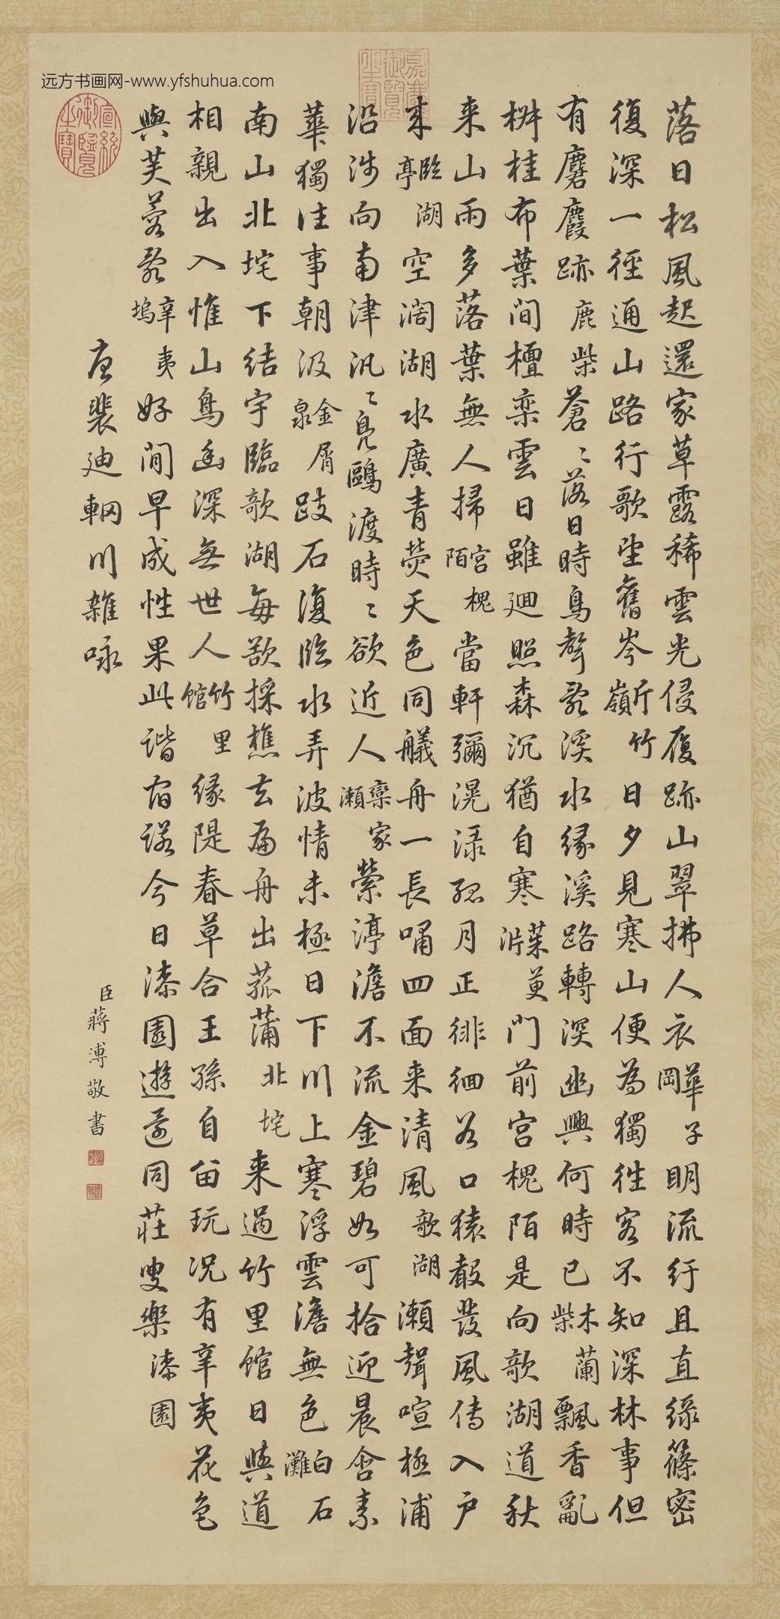 远方书画网-www.yfshuhua.com
嘉慶御覽之寶
落日松風起還家草露稀雲光侵履跡山翠拂人衣華子岡明流紆且直綠篠密
復深一徑通山路行歌望舊岑斤竹嶺日夕見寒山便為獨往客不知深林事但
有麏麚跡鹿柴蒼〻落日時鳥聲亂溪水緣溪路轉深幽興何時已木蘭柴飄香亂
椒桂布葉間檀欒雲日雖廻照森沉猶自寒茱萸沜門前宮槐陌是向欹湖道秋
来山雨多落葉無人掃宮槐陌當軒彌滉漾孤月正徘徊谷口猿聲發風傳入户
来臨湖亭空濶湖水廣青熒天色同艤舟一長嘯四面来清風欹湖瀨聲喧極浦
沿涉向南津汎〻鳧鷗渡時〻欲近人欒家瀨縈渟澹不流金碧如可拾迎晨含素
華獨往事朝汲金屑泉跂石復臨水弄波情未極日下川上寒浮雲澹無色白石灘
南山北垞下結宇臨欹湖每欲採樵去扁舟出菰蒲北垞来過竹里館日與道
相親出入惟山鳥幽深無世人竹里館緣隄春草合王孫自留玩况有辛夷花色
與芙蓉亂辛夷塢好閒早成性果此諧宿諾今日漆園遊還同莊叟樂漆園
唐裴廸輞川雜咏
臣蔣溥敬書
宣統御覽之寶